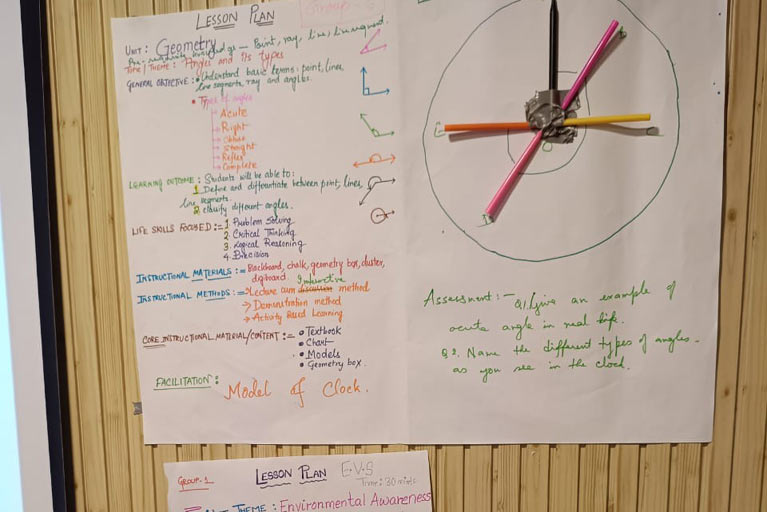 LESSON PLAN
Group-
UNIT: Geometry
Pre-requisite knowledge - Point, ray, line, line segment
TOPIC/THEME: Angles and its types
GENERAL OBJECTIVE: • Understand basic terms: point, lines,
line segments, ray and angles.
• Types of angles
→ Acute
→ Right
→ Obtuse
→ Straight
→ Reflex
→ Complete
LEARNING OUTCOME: Students will be able to:
1 Define and differentiate between point, lines,
line segments.
2 classify different angles.
LIFE SKILLS FOCUSED:= 1 Problem Solving
2. Critical Thinking
3. Logical Reasoning
4. Precision
INSTRUCTIONAL MATERIALS:= Blackboard, chalk, geometry box, duster,
digiboard. Interactive
INSTRUCTIONAL METHODS:= → Lecture cum discussion method
→ Demonstration method
→ Activity Based Learning
CORE INSTRUCTIONAL MATERIAL/CONTENT:= • Textbook
• Chart
• Models
• Geometry box.
FACILITATION: Model of Clock.
C
D
O
Assessment:- Q1) Give an example of
acute angle in real life.
Q2. Name the different types of angles
as you see in the clock.
GROUP. 1
LESSON PLAN E.V.S
Time: 30 mints
THEME: Environmental Awareness